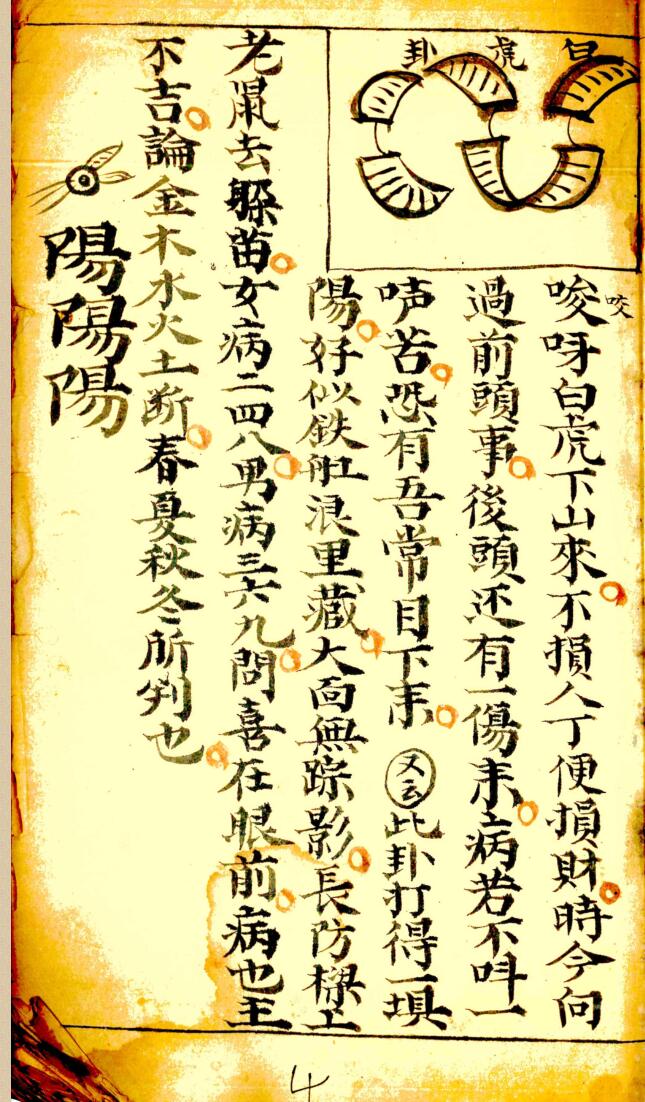 白虎卦
咬
唆呀白虎下山來不損人丁便損財時今向
過前頭事後頭还有一傷来病若不呌一
唥苦恐有吾常目下来又云此卦打得一填
陽好似鉄舡浪里藏大面無踪影長防樑上
老鼠去躲苗女病二四八男病三六九問喜在眼前病也主
不吉論金木水火土断春夏秋冬所判也
陽陽陽
4